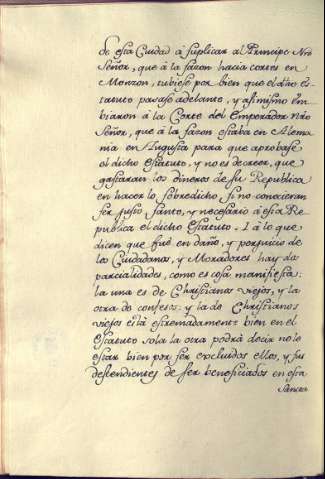 de esta Ciudad à suplicar al Principe Nrô
Señor, que à la sazon hacia cortes en
Monzon, tubiese por bien que el dho es-
tatuto pasase adelante, y asimismo em-
biaron à la Corte del Emperador nrô
Señor, que à la sazon estaba en Alema-
nia en Augusta para que aprobase
el dicho Estatuto, y no es de creer, que
gastaran los dineros de su Republica
en hacer lo sobredicho si no conocieran
ser justo santo, y necesario à esta Re-
publica el dicho Estatuto. I à lo que
dicen que fué en daño, y perjuicio de
los Ciudadanos, y Moradores hay dos
parcialidades, como es cosa manifiesta
la una es de Christianos viejos, y la
otra de confesos: y la de Christianos
viejos està estremadamente bien en el
Estatuto sola la otra podrà decir no le
estar bien por ser excluidos ellos, y sus
descendientes de ser beneficiados en esta
Sancta